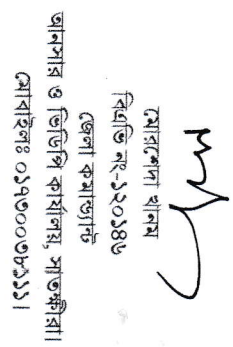 মোরশেদা খানম
বিএভি নং-১২০১৪৬
জেলা কমান্ড্যান্ট
আনসার ও ভিডিপি কার্যালয়, সাতক্ষীরা।
মোবাইলঃ ০১৭৩০০৩৮১১১।